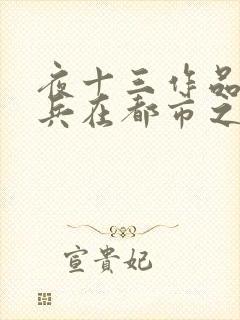 夜十三作品
兵在都市之
宣貴妃